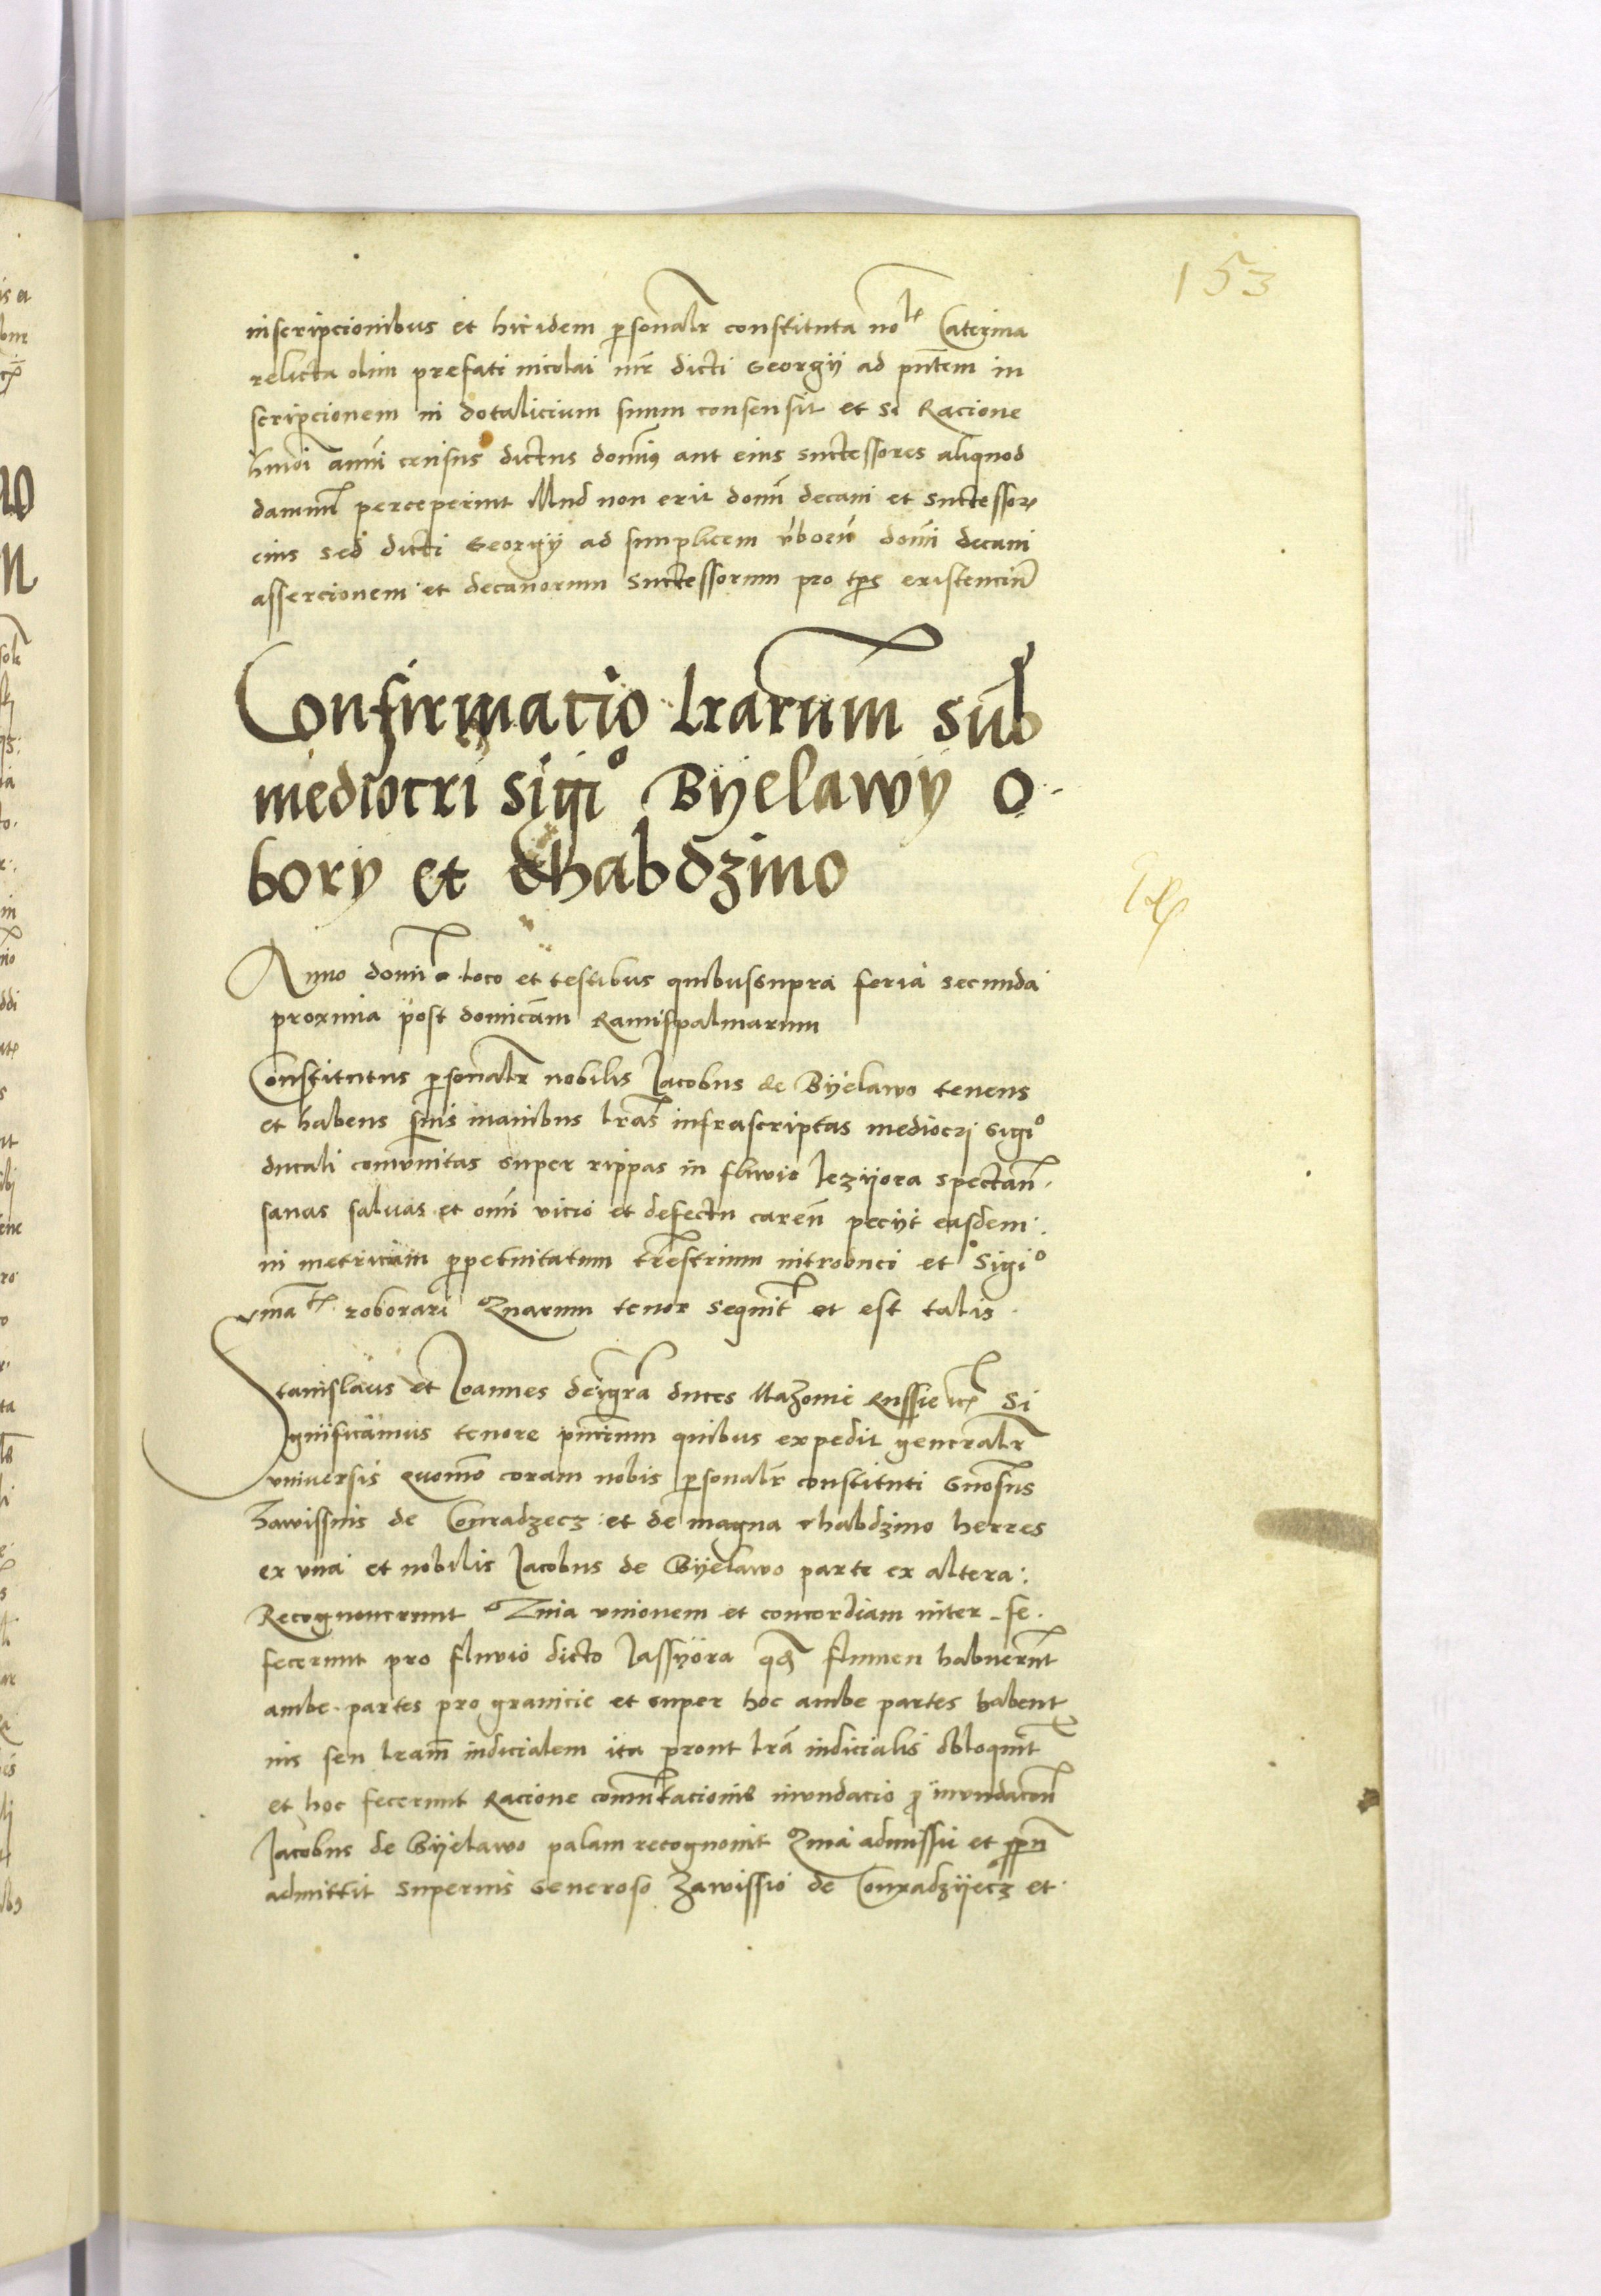 153
inscripcionibus et hic idem psonalr constituta nolis Caterina
relicta olim prefati nicolai mr dicti Georgÿ ad pntem in
scripcionem in dotalicium suum consensit et si Racione
hmoi anni census dictus domins aut eius successores aliquod
damnu perceperint illud non erit domi decani et successor
eius sed dicti Georgÿ ad simplicem vboru domi decani
assercionem et decanorum successorum pro tpe existenciu
Confirmacio lrarum sub
mediocri sigio Bÿelawÿ o
borÿ et chabdzino
Anno domi loco et testibus quibussupra feria secunda
proxima post domicam Ramispalmarum
Constitutus psonalr nobilis Jacobus de Bÿelawo tenens
et habens suis manibus lras infrascriptas mediocri sigio
ducali comunitas super rippas in fluvio Jezÿora spectan
sanas salvas et omi vicio et defectu caren pecÿt easdem
in metricam ppetuitatum trestrium introduci et sigio
roborari Quarum tenor sequit et est talis
Stanislaus et Joannes deigra duces Mazovie Russie etc Si
gnificamus tenore pncium quibus expedit generalr
universis quomo coram nobis psonalr constituti Gnosus
Zawissius de Conradzecz et de magna chabdzino herres
ex una et nobilis Jacobus de Bÿelawo parte ex altera
Recognoverunt Quia unionem et concordiam inter se
fecerunt pro fluvio dicto Jassÿora qd flumen habuerunt
ambe partes pro granicie et super hoc ambe partes habent
ius seu lram iudicialem ita prout lra iudicialis obloquit
et hoc fecerunt Racione comutacionis inundacio p inundacon
Jacobus de Bÿelawo palam recognovit Quia admissit et ppn
admittit superius Generoso Zawissio de Conradzÿecz et